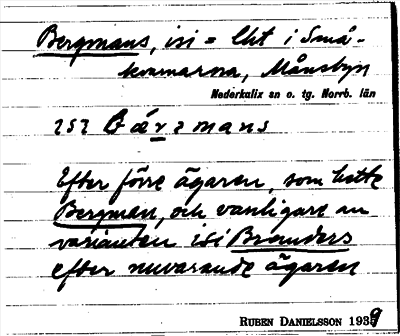 Bergmans, isi = Lht i Små-
kvarnarna, Månsbyn
Nederkalix sn o. tg. Norrb. län
Efter förre ägaren, som hette
Bergman, och vanligare än
varianten isi Branders
efter nuvarande ägaren
RUBEN DANIELSSON 1939